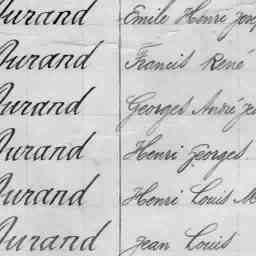 Durand Emile Henri Jose
Durand Francis René
Durand Georges André Je
Durand Henri Georges
Durand Henri Louis M
Durand Jean Louis